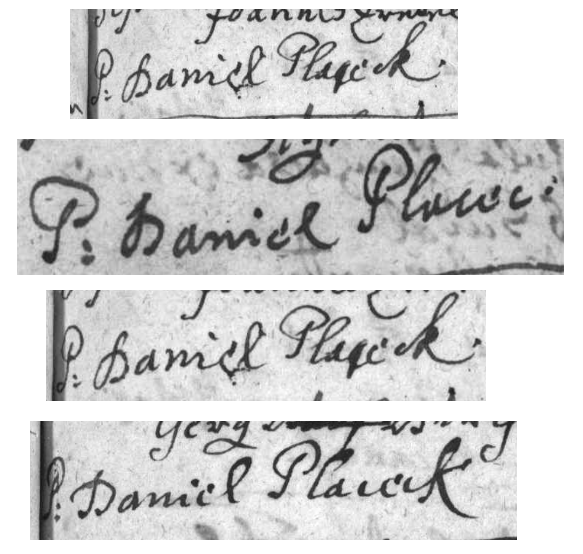 Joannes
P: Daniel Placeck.
P: Daniel Placec:
P: Daniel Placeck.
P: Daniel Placeck